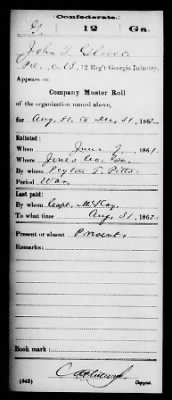 Confederate.
G 12 Ga.
John T.
Pvt., Co. B, 12 Reg't Georgia Infantry.
Appears on
Company Muster Roll
of the organization named above,
for Aug. 31, to Dec. 31, 1862.
Enlisted:
When June 9, 1861.
Where Jones Co. Ga.
By whom Peyton T. Pitts
Period War
Last paid:
By whom Capt. McKay
To what time Aug. 31, 1862.
Present or absent Present
Remarks:
Book mark:
(642)
Copyist.